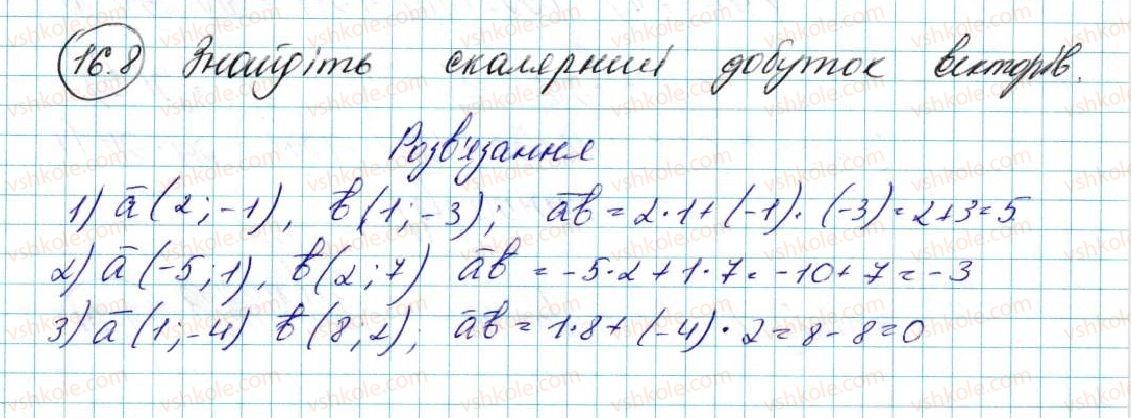 16.8 Знайдіть скалярний добуток векторів.
Розв'язання
1) a̅ (2; -1), b̅ (1; -3); a̅b̅ = 2·1 + (-1)·(-3) = 2+3 = 5
2) a̅ (-5; 1), b̅ (2; 7) a̅b̅ = -5·2 + 1·7 = -10 + 7 = -3
3) a̅ (1; -4) b̅ (8; 2), a̅b̅ = 1·8 + (-4)·2 = 8 - 8 = 0